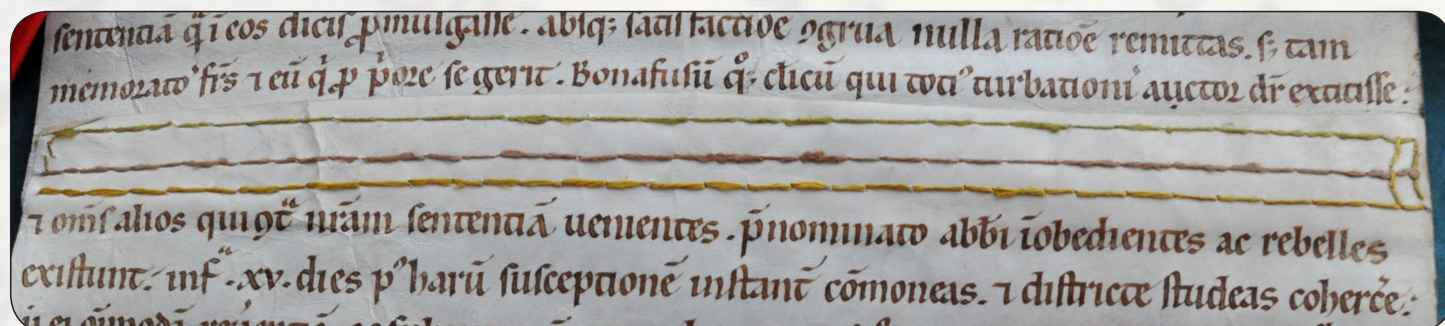 sententiā q̄ i eos dicis ꝓmulgasse. absq; satisfactiōe ꝯgrua nulla ratiōe remittas. s; tam
memorato fr̄s ⁊ eū q̇ ꝓ p̄ore se gerit. Bonafusū q̊; clicū qui toti᾽ turbationiˢ auctor dr̄ extitisse.
⁊ om̄s alios qui ꝯt̄ nr̄am sententiā uenientes. p̄nominato abb̄i īobedientes ac rebelles
existunt. infᵃ .xv. dies p᾽ harū susceptionē instant̄ cōmoneas. ⁊ districte studeas coherc̄e.